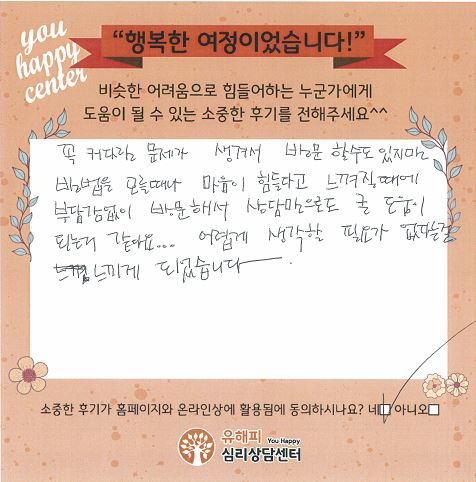 you
happy
center
“행복한 여정이었습니다!”
비슷한 어려움으로 힘들어하는 누군가에게
도움이 될 수 있는 소중한 후기를 전해주세요^^
꼭 커다란 문제가 생겨서 방문 할수도 있지만
방법을 모를때나 마음이 힘들다고 느껴질때에
부담감없이 방문해서 상담만으로도 큰 도움이
되는거 같아요... 어렵게 생각할 필요가 없다는걸
느끼게 되었습니다.
소중한 후기가 홈페이지와 온라인상에 활용됨에 동의하시나요? 네□ 아니오□
유해피 You Happy
심리상담센터